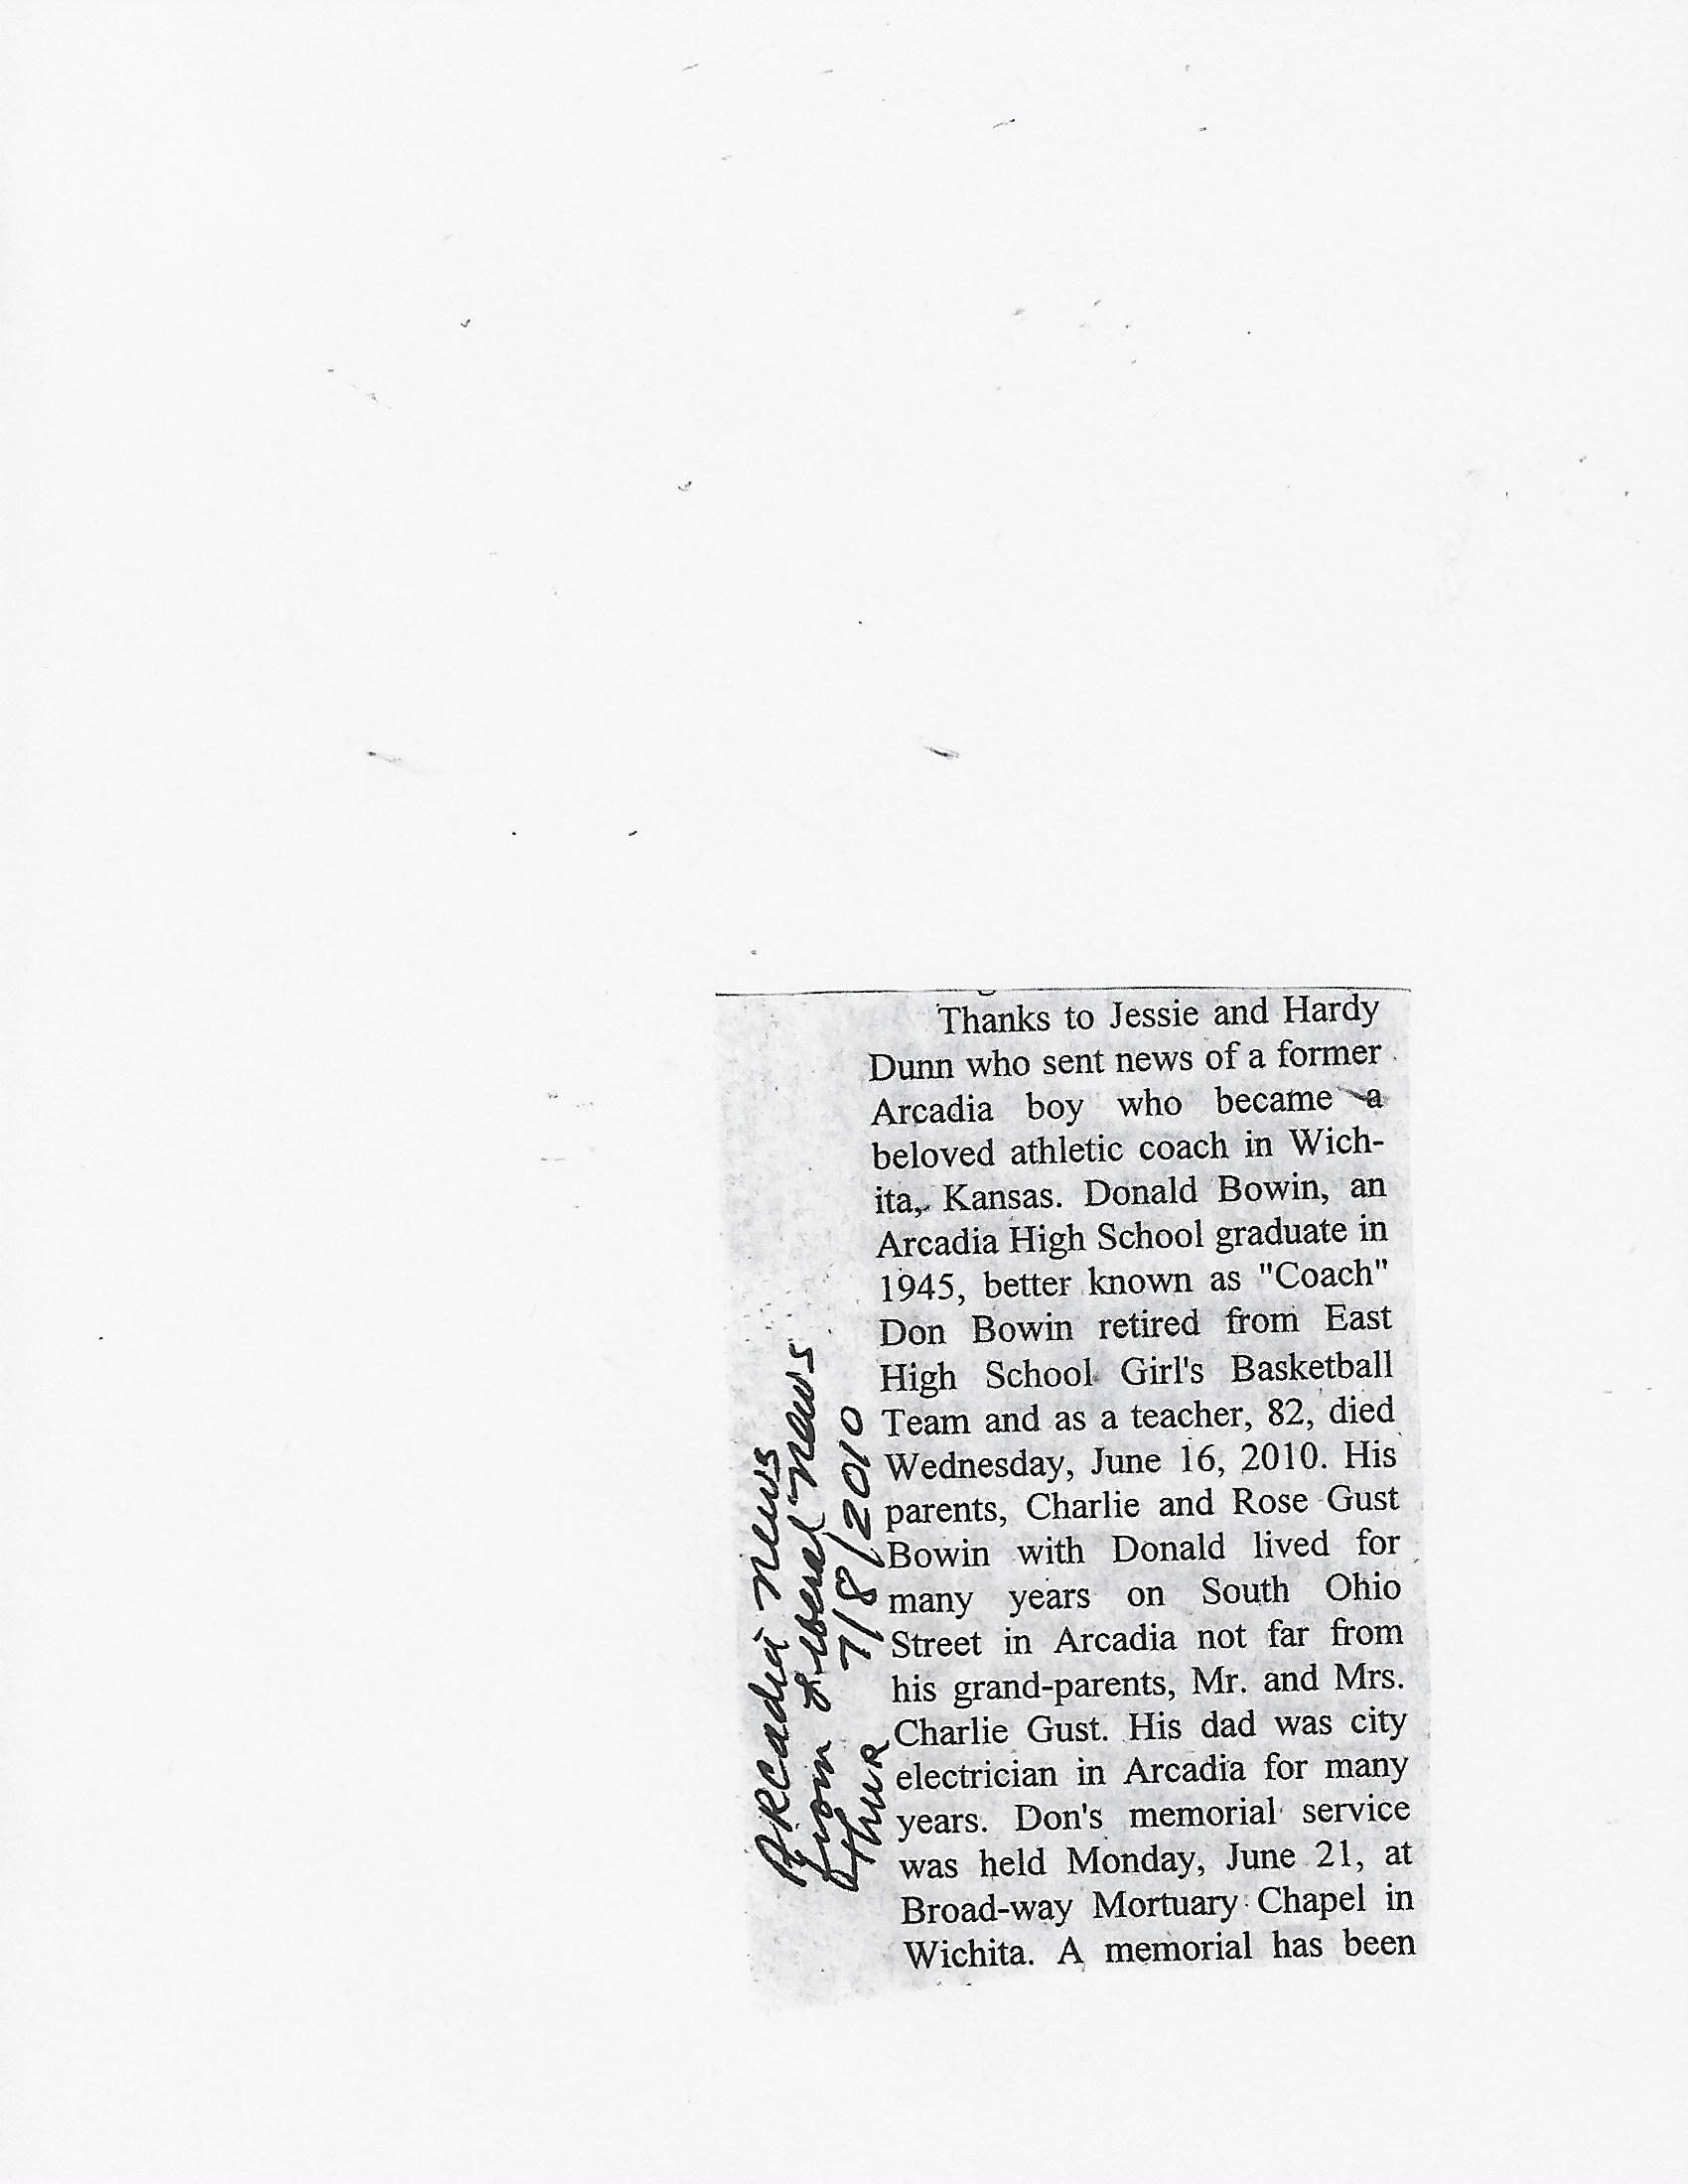 Thanks to Jessie and Hardy
Dunn who sent news of a former
Arcadia boy who became a
beloved athletic coach in Wich-
ita, Kansas. Donald Bowin, an
Arcadia High School graduate in
1945, better known as "Coach"
Don Bowin retired from East
High School Girl's Basketball
Team and as a teacher, 82, died
Wednesday, June 16, 2010. His
parents, Charlie and Rose Gust
Bowin with Donald lived for
many years on South Ohio
Street in Arcadia not far from
his grand-parents, Mr. and Mrs.
Charlie Gust. His dad was city
electrician in Arcadia for many
years. Don's memorial service
was held Monday, June 21, at
Broad-way Mortuary Chapel in
Wichita. A memorial has been
ARCadia News
from Liberal News
thuR 7/8/2010